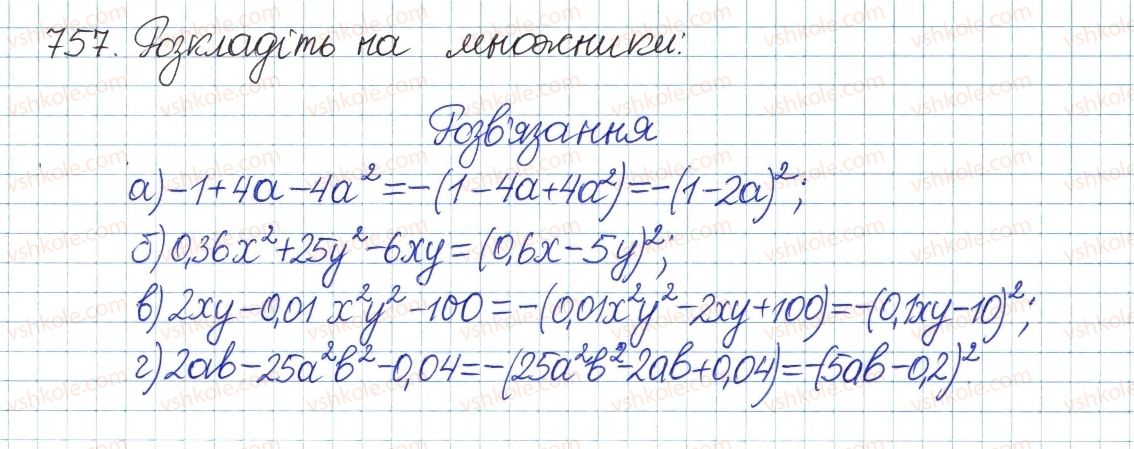 757. Розкладіть на множники:
Розв'язання
а) -1+4a-4a²=-(1-4a+4a²)=-(1-2a)²;
б) 0,36x²+25y²-6xy=(0,6x-5y)²;
в) 2xy-0,01 x²y²-100=-(0,01x²y²-2xy+100)=-(0,1xy-10)²;
г) 2ab-25a²b²-0,04=-(25a²b²-2ab+0,04)=-(5ab-0,2)²